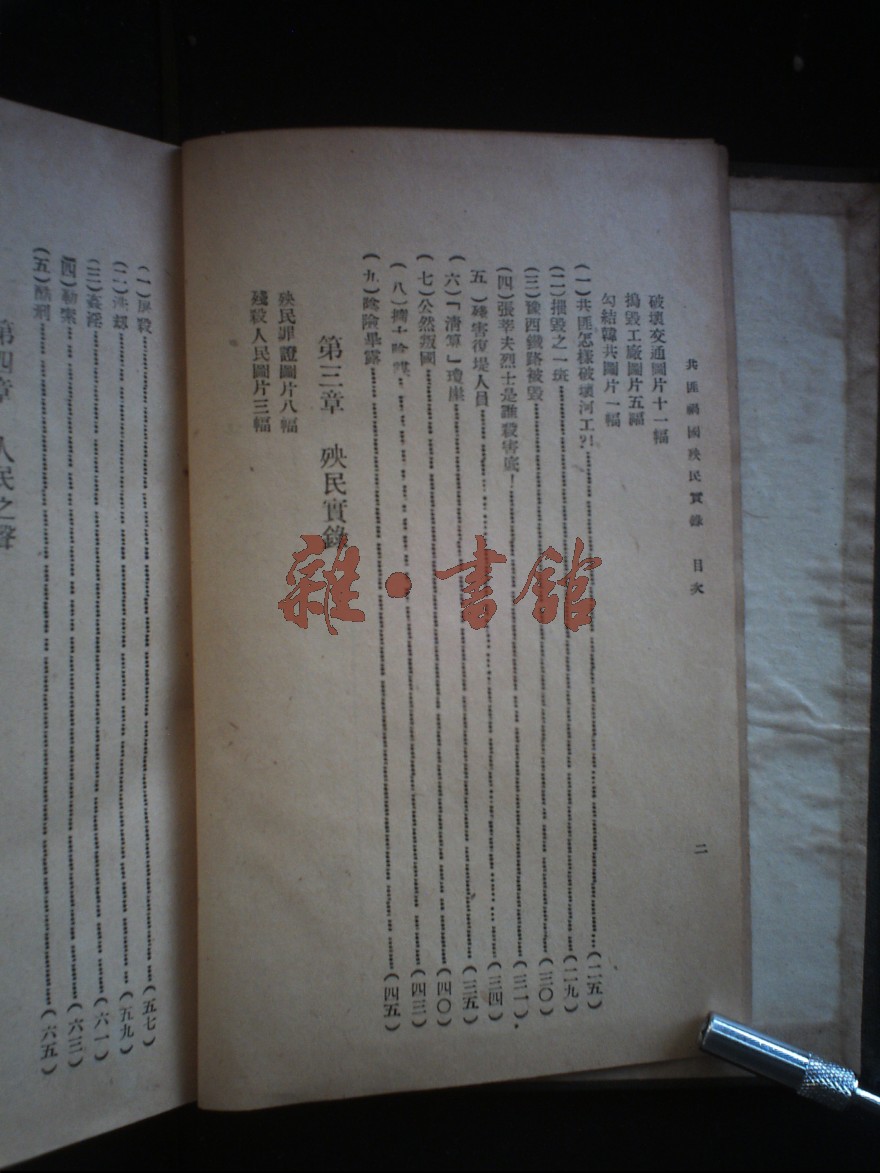 共匪禍國殃民實錄 目次 二
破壞交通圖片十一幅
搗毀工廠圖片五幅
勾結韓共圖片一幅
(一)共匪怎樣破壞河工?!……(二五)
(二)摧毀之一斑……(二九)
(三)豫西鐵路被毀……(三〇)
(四)張莘夫烈士是誰殺害底!……(三一)
(五)殘害復堤人員……(三四)
(六)「清算」瓊崖……(三五)
(七)公然叛國……(四〇)
(八)擴大陰謀……(四三)
(九)陰險畢露……(四五)
第三章 殃民實錄
殃民罪證圖片八幅
殘殺人民圖片三幅
(一)屠殺……(五七)
(二)洗劫……(五九)
(三)姦淫……(六一)
(四)勒索……(六三)
(五)酷刑……(六五)
第四章 人民之聲
雜·書館